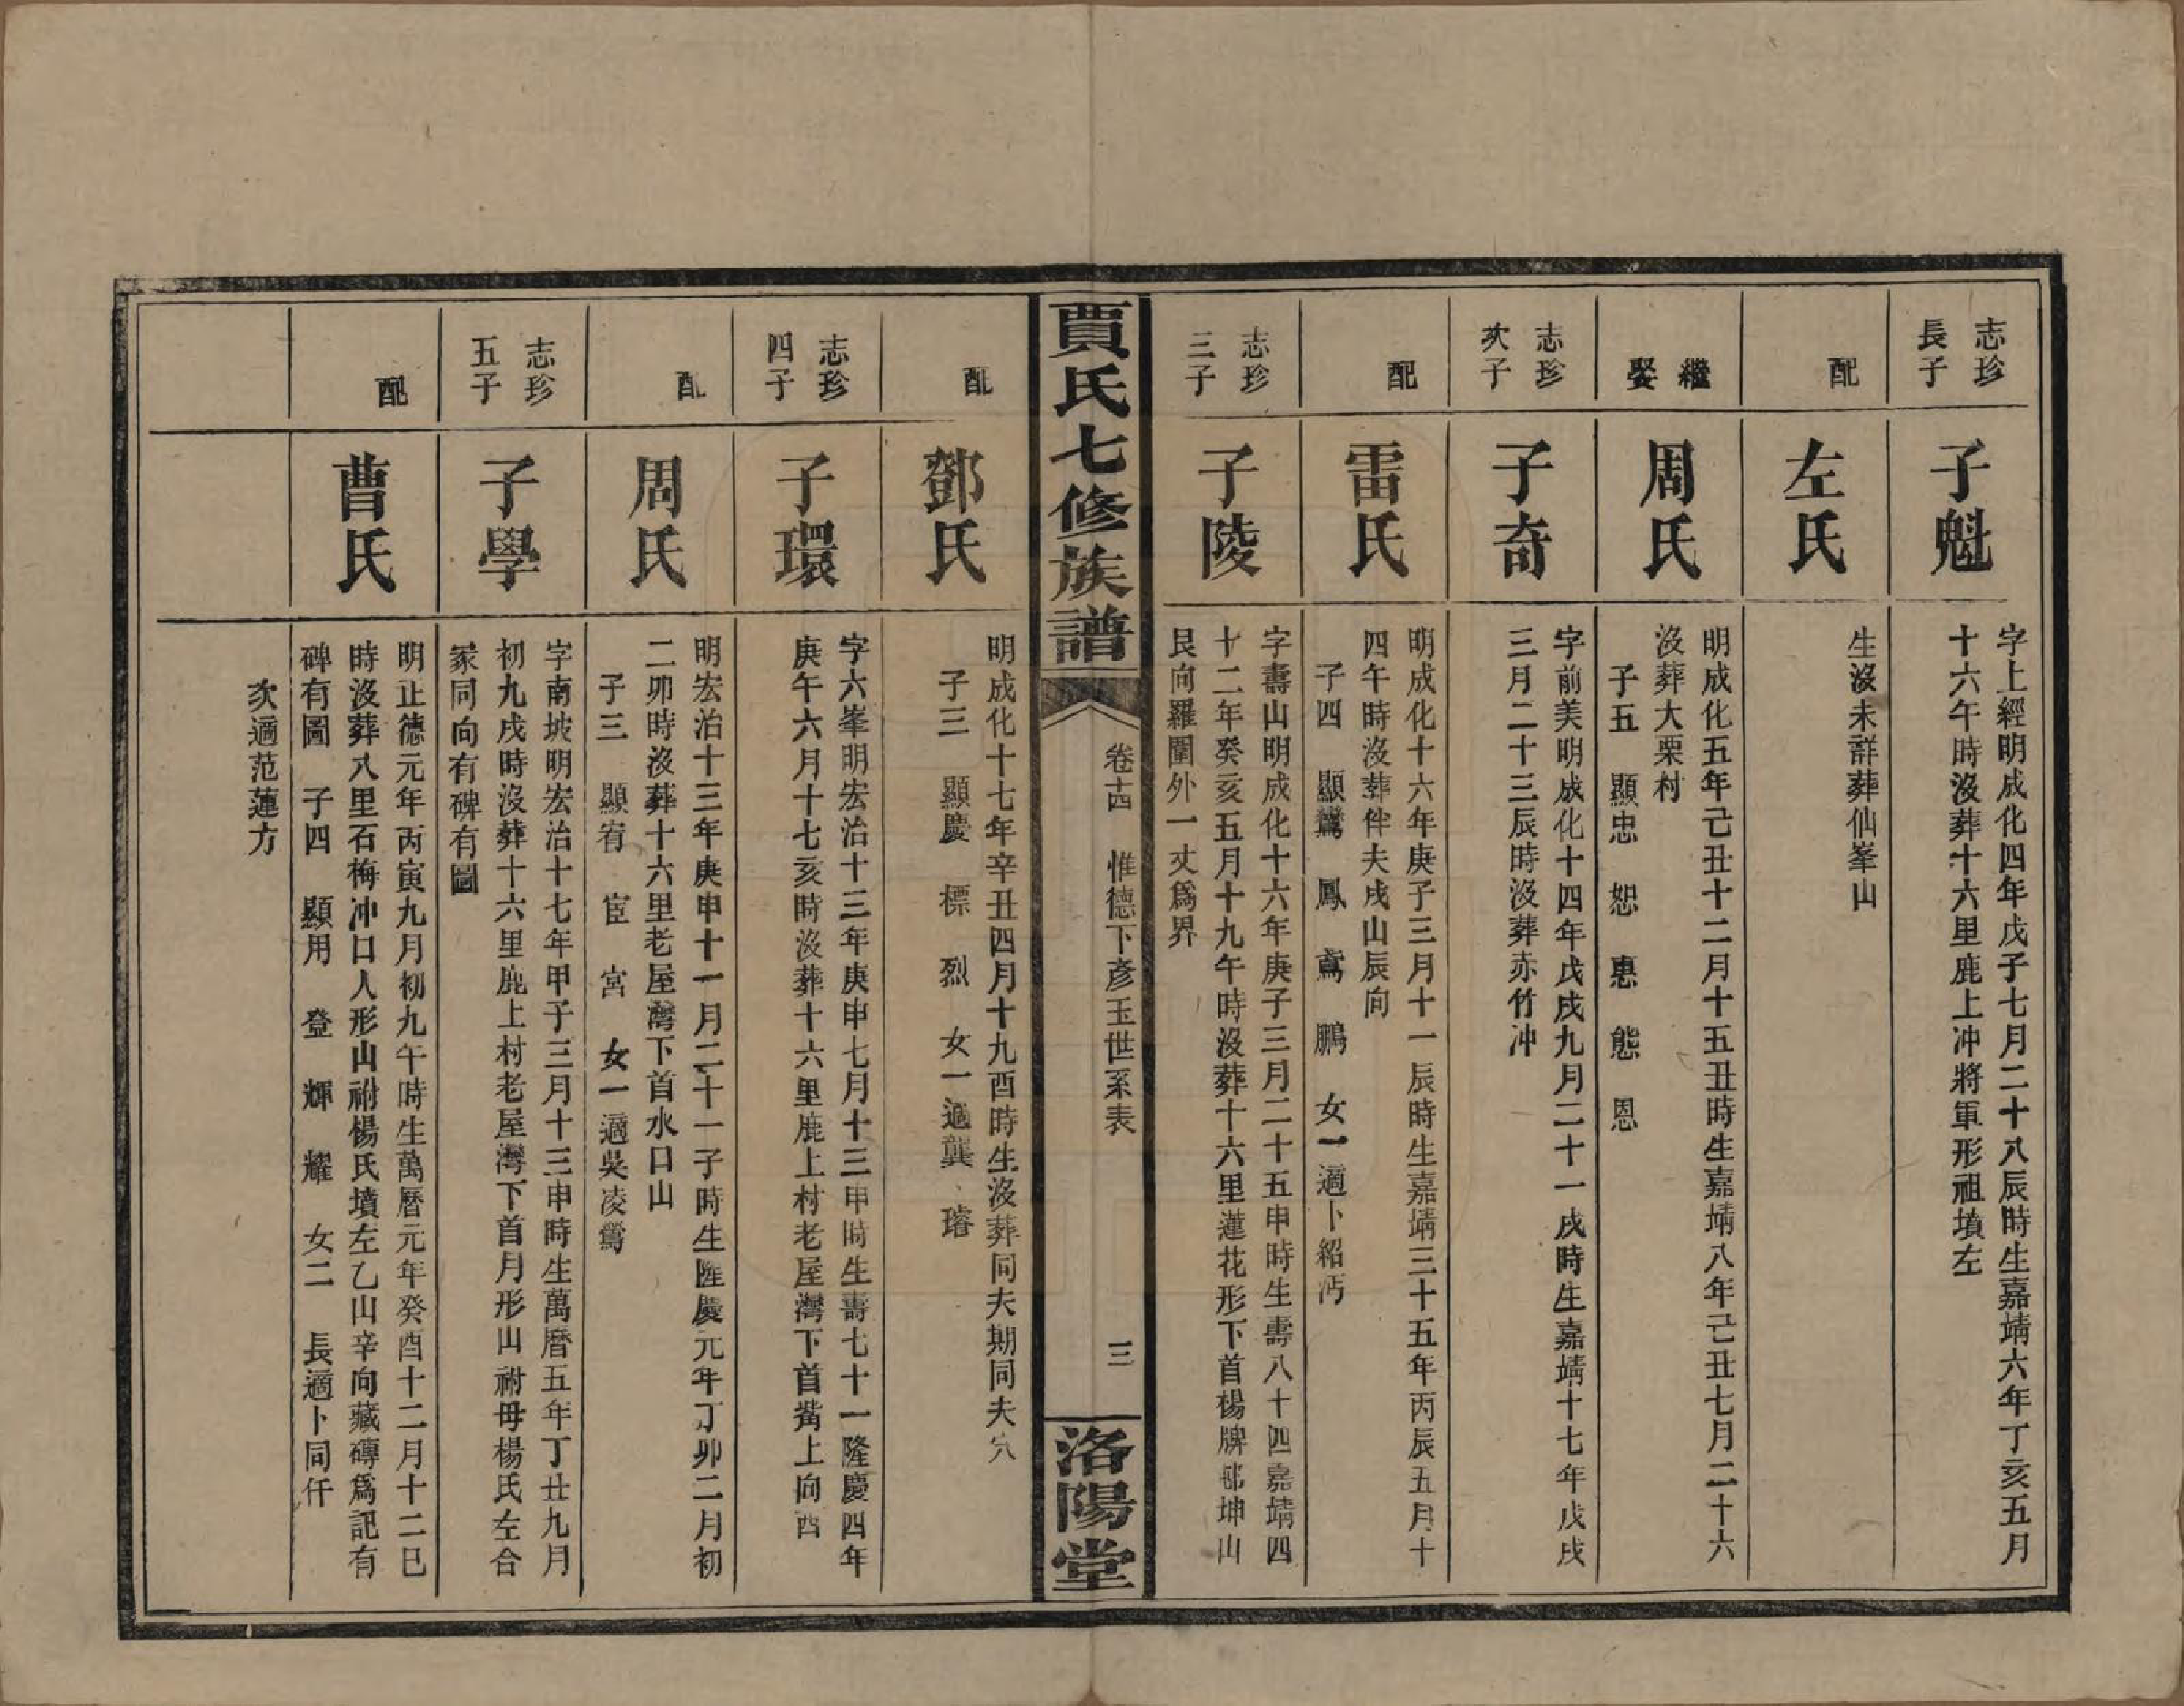 志珍
長子
子魁
字上經明成化四年戊子七月二十八辰時生嘉靖六年丁亥五月
十六午時沒葬十六里鹿上冲將軍形祖墳左
配
左氏
生沒未詳葬仙峯山
繼
娶
周氏
明成化五年己丑十二月十五丑時生嘉靖八年己丑七月二十六
沒葬大栗村
子五 顯忠 恕 惠 態 恩
志珍
次子
子奇
字前美明成化十四年戊戌九月二十一戌時生嘉靖十七年戊戌
三月二十三辰時沒葬赤竹冲
配
雷氏
明成化十六年庚子三月十一辰時生嘉靖三十五年丙辰五月十
四午時沒葬伴夫戌山辰向
子四 顯鸞 鳳 鳶 鵬 女一適卜紹沔
志珍
三子
子陵
字壽山明成化十六年庚子三月二十五申時生壽八十四嘉靖四
十二年癸亥五月十九午時沒葬十六里蓮花形下首楊牌邨坤山
艮向羅圍外一丈爲界
賈氏七修族譜
卷十四 惟德下彥玉世系表
三
洛陽堂
配
鄧氏
明成化十七年辛丑四月十九酉時生沒葬同夫期同夫穴
子三 顯慶 標 烈 女一適龔 瑃
志珍
四子
子環
字六峯明宏治十三年庚申七月十三申時生壽七十一隆慶四年
庚午六月十七亥時沒葬十六里鹿上村老屋灣下首嘴上向酉
配
周氏
明宏治十三年庚申十一月二十一子時生隆慶元年丁卯二月初
二卯時沒葬十六里老屋灣下首水口山
子三 顯宥 宦 宮 女一適吳凌鸞
志珍
五子
子學
字南坡明宏治十七年甲子三月十三申時生萬曆五年丁丑九月
初九戌時沒葬十六里鹿上村老屋灣下首月形山祔母楊氏左合
冢同向有碑有圖
配
曹氏
明正德元年丙寅九月初九午時生萬曆元年癸酉十二月十二巳
時沒葬八里石梅冲口人形山祔楊氏墳左乙山辛向藏磚爲記有
碑有圖 子四 顯用 登 輝 耀 女二 長適卜同仟
次適范蓮方